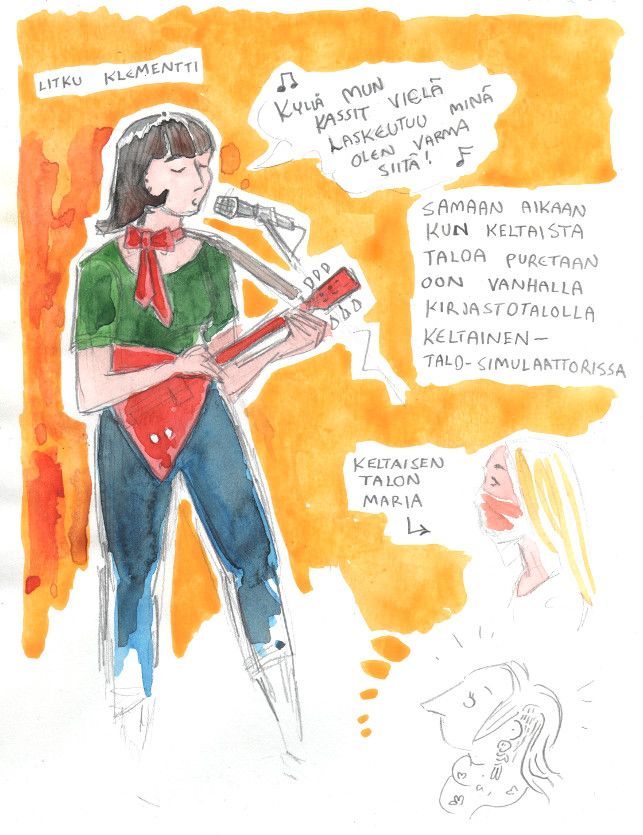 LITKU KLEMENTTI
KYLLÄ MUN
KASSIT VIELÄ
LASKEUTUU MINÄ
OLEN VARMA
SIITÄ!
SAMAAN AIKAAN
KUN KELTAISTA
TALOA PURETAAN
OON VANHALLA
KIRJASTOTALOLLA
KELTAINEN-
TALO-SIMULAATTORISSA
KELTAISEN
TALON
MARIA